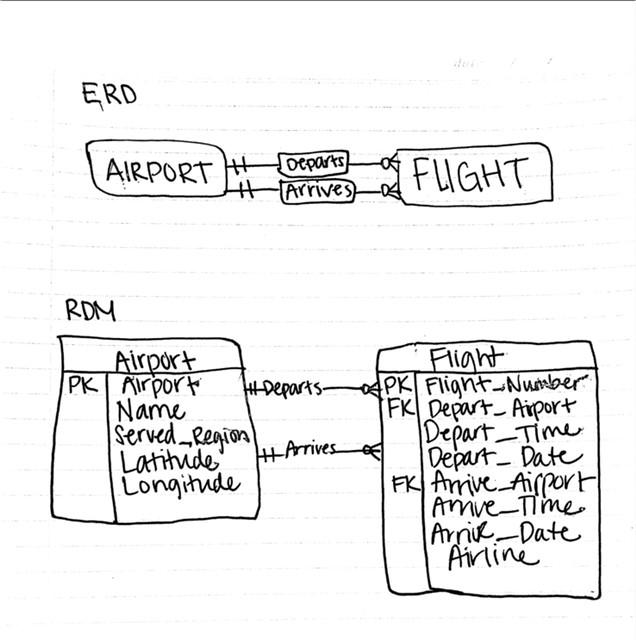 ERD
AIRPORT
Departs
Arrives
FLIGHT
RDM
Airport
PK Airport
Name
Served_Region
Latitude
Longitude
Departs
Arrives
Flight
PK Flight_Number
FK Depart_Airport
Depart_Time
Depart_Date
FK Arrive_Airport
Arrive_Time
Arrive_Date
Airline